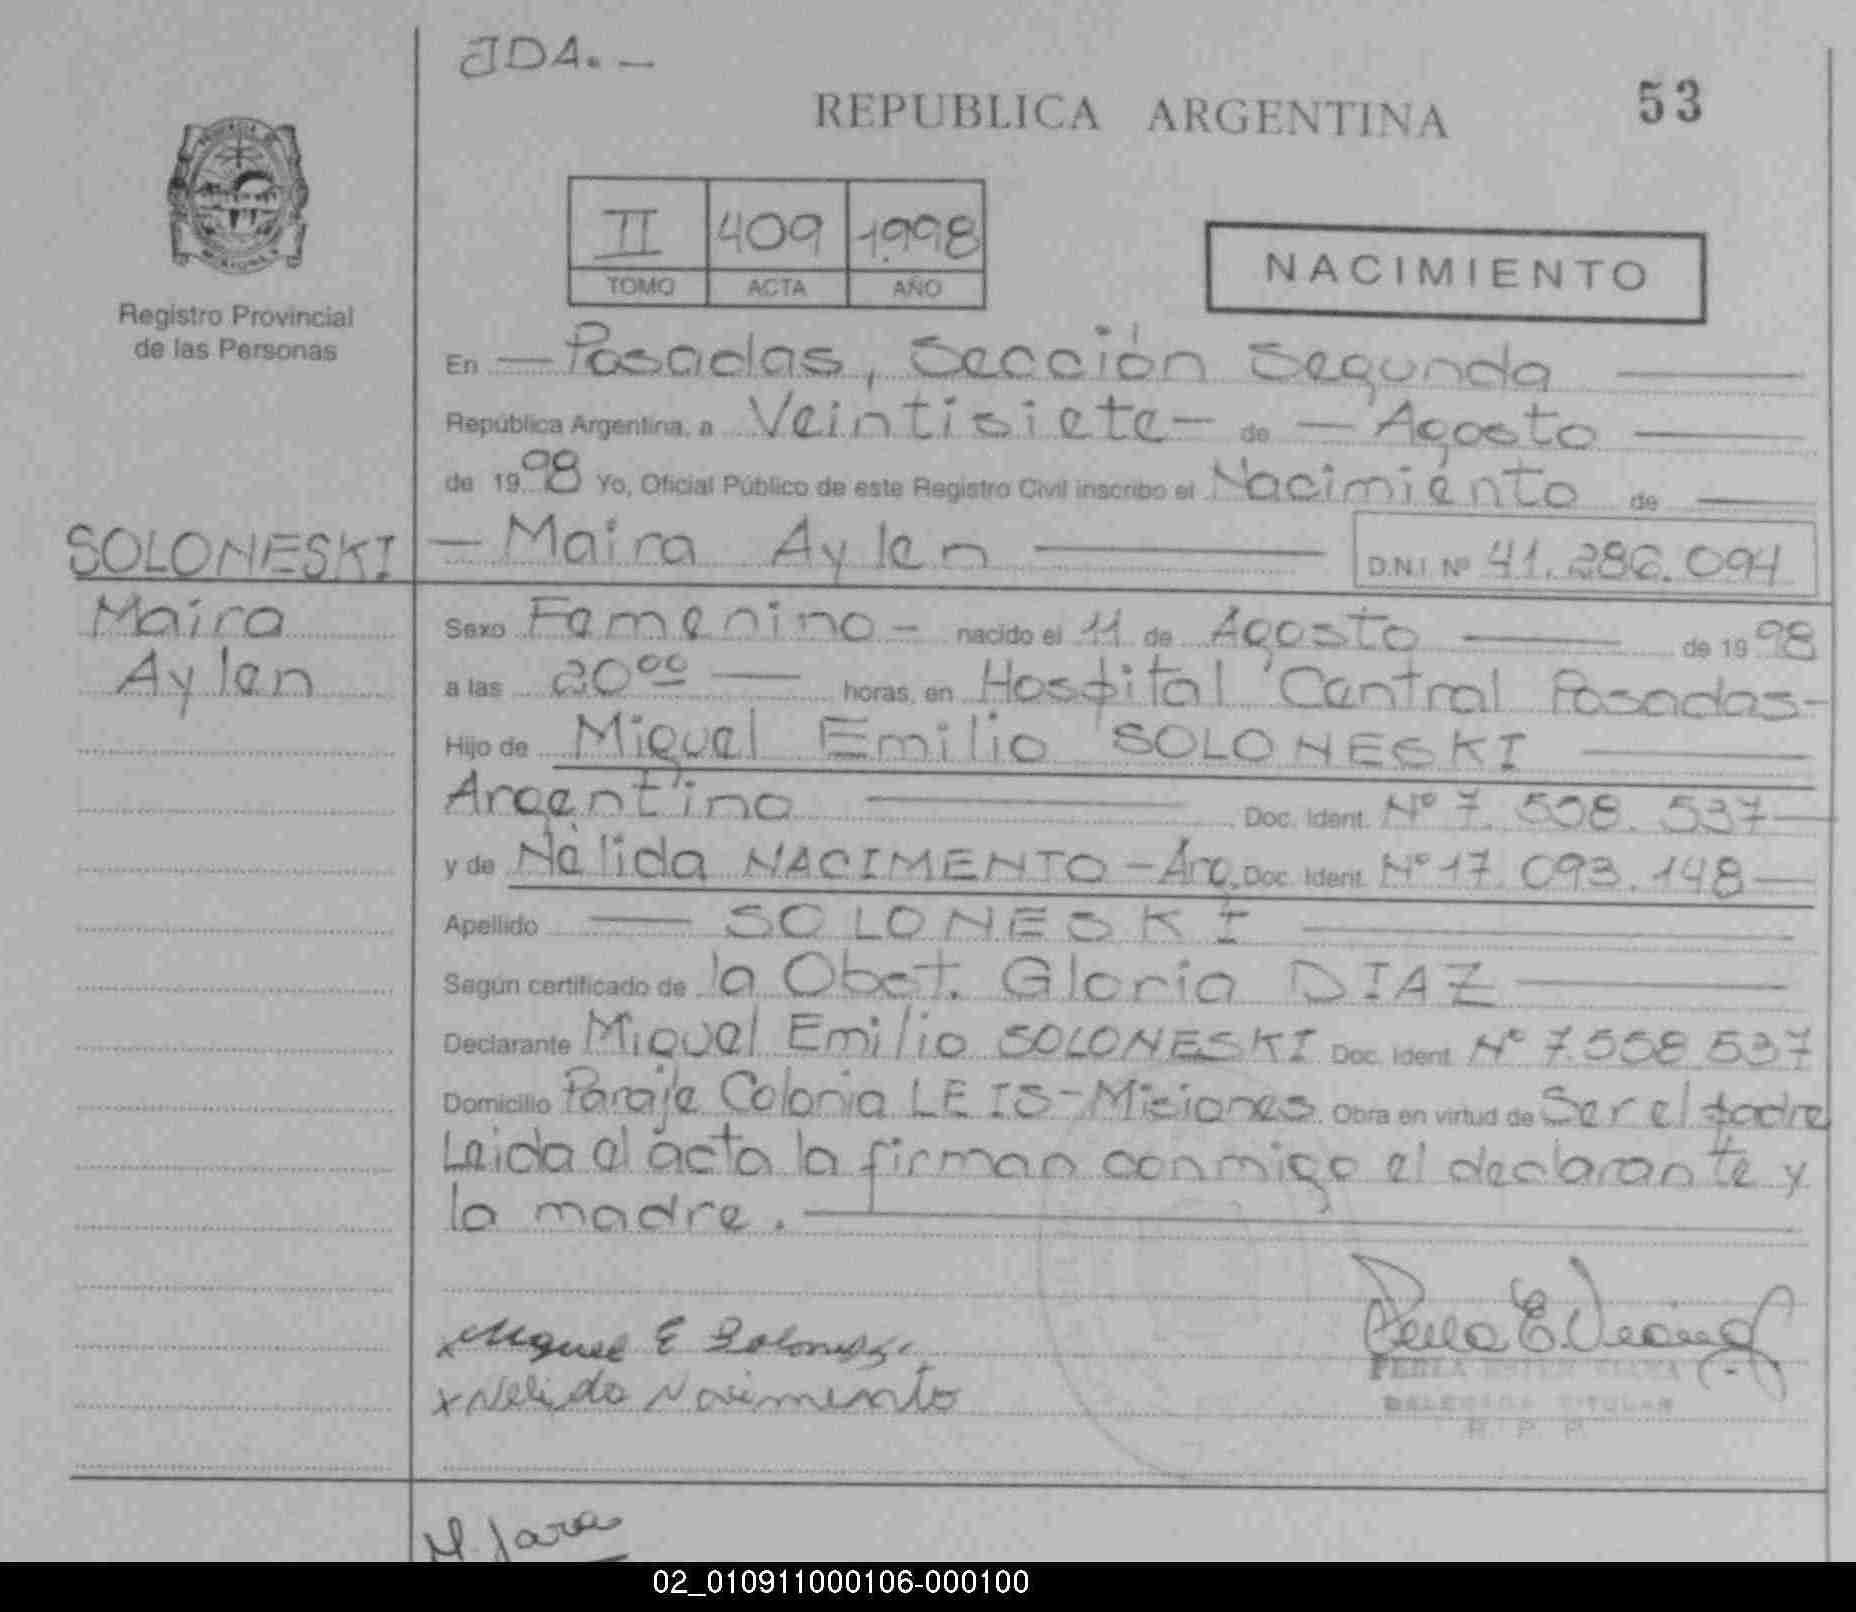 JDA.-
REPUBLICA ARGENTINA
53
II 409 1.998
TOMO ACTA AÑO
NACIMIENTO
Registro Provincial
de las Personas
En — Posadas, Sección Segunda —
República Argentina, a Veintisiete - de - Agosto —
de 1998 Yo, Oficial Público de este Registro Civil inscribo el Nacimiento de —
SOLONESKI
Maira
Aylen
— Maira Aylen — D.N.I. Nº 41.286.094
Sexo Femenino - nacido el 11 de Agosto — de 1998
a las 20⁰⁰ — horas, en Hospital Central Posadas-
Hijo de Miguel Emilio SOLONESKI —
Argentino — Doc. Ident. Nº 7.558.537—
y de Nélida NACIMENTO - Arg. Doc. Ident. Nº 17.093.148—
Apellido — SOLONESKI —
Según certificado de la Obst. Gloria DIAZ —
Declarante Miguel Emilio SOLONESKI Doc. Ident. Nº 7.558.537
Domicilio Paraje Colonia LEIS-Misiones. Obra en virtud de Ser el padre
Leida el acta la firman conmigo el declarante y
la madre. —
x Miguel E Soloneski
x Nelida Nacimento
PERLA ESTER
DELEGADA TITULAR
R. P. P.
M. Jara
02_010911000106-000100